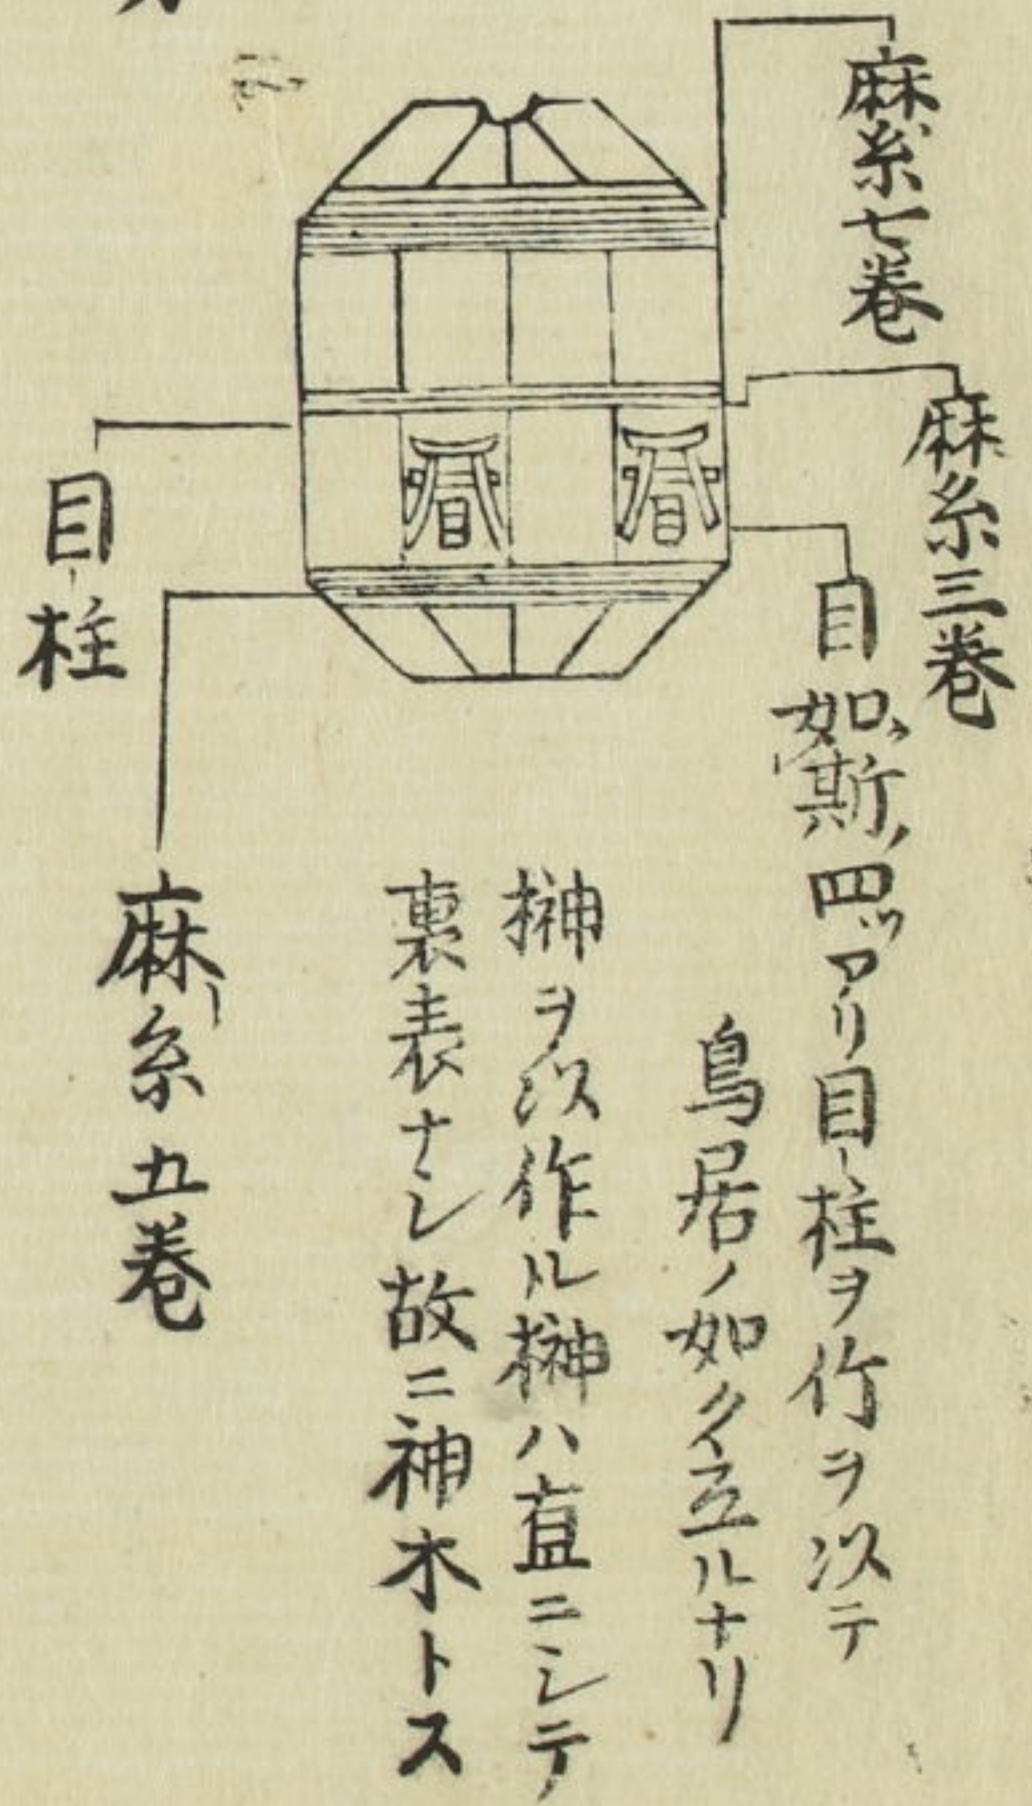 麻糸七巻
麻糸三巻
目
如斯ノ四ッアリ目柱ヲ竹ヲ以テ
鳥居ノ如ク立ルナリ
榊ヲ以作ル榊ハ直ニシテ
裏表ナシ故ニ神木トス
麻糸五巻
目柱